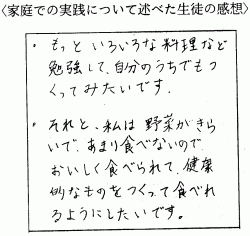 〈家庭での実践について述べた生徒の感想〉
・もっといろいろな料理など
勉強して、自分のうちでもつ
くってみたいです。
・それと、私は野菜がきら
いで、あまり食べないので、
おいしく食べられて、健康
的なものをつくって食べれ
るようにしたいです。